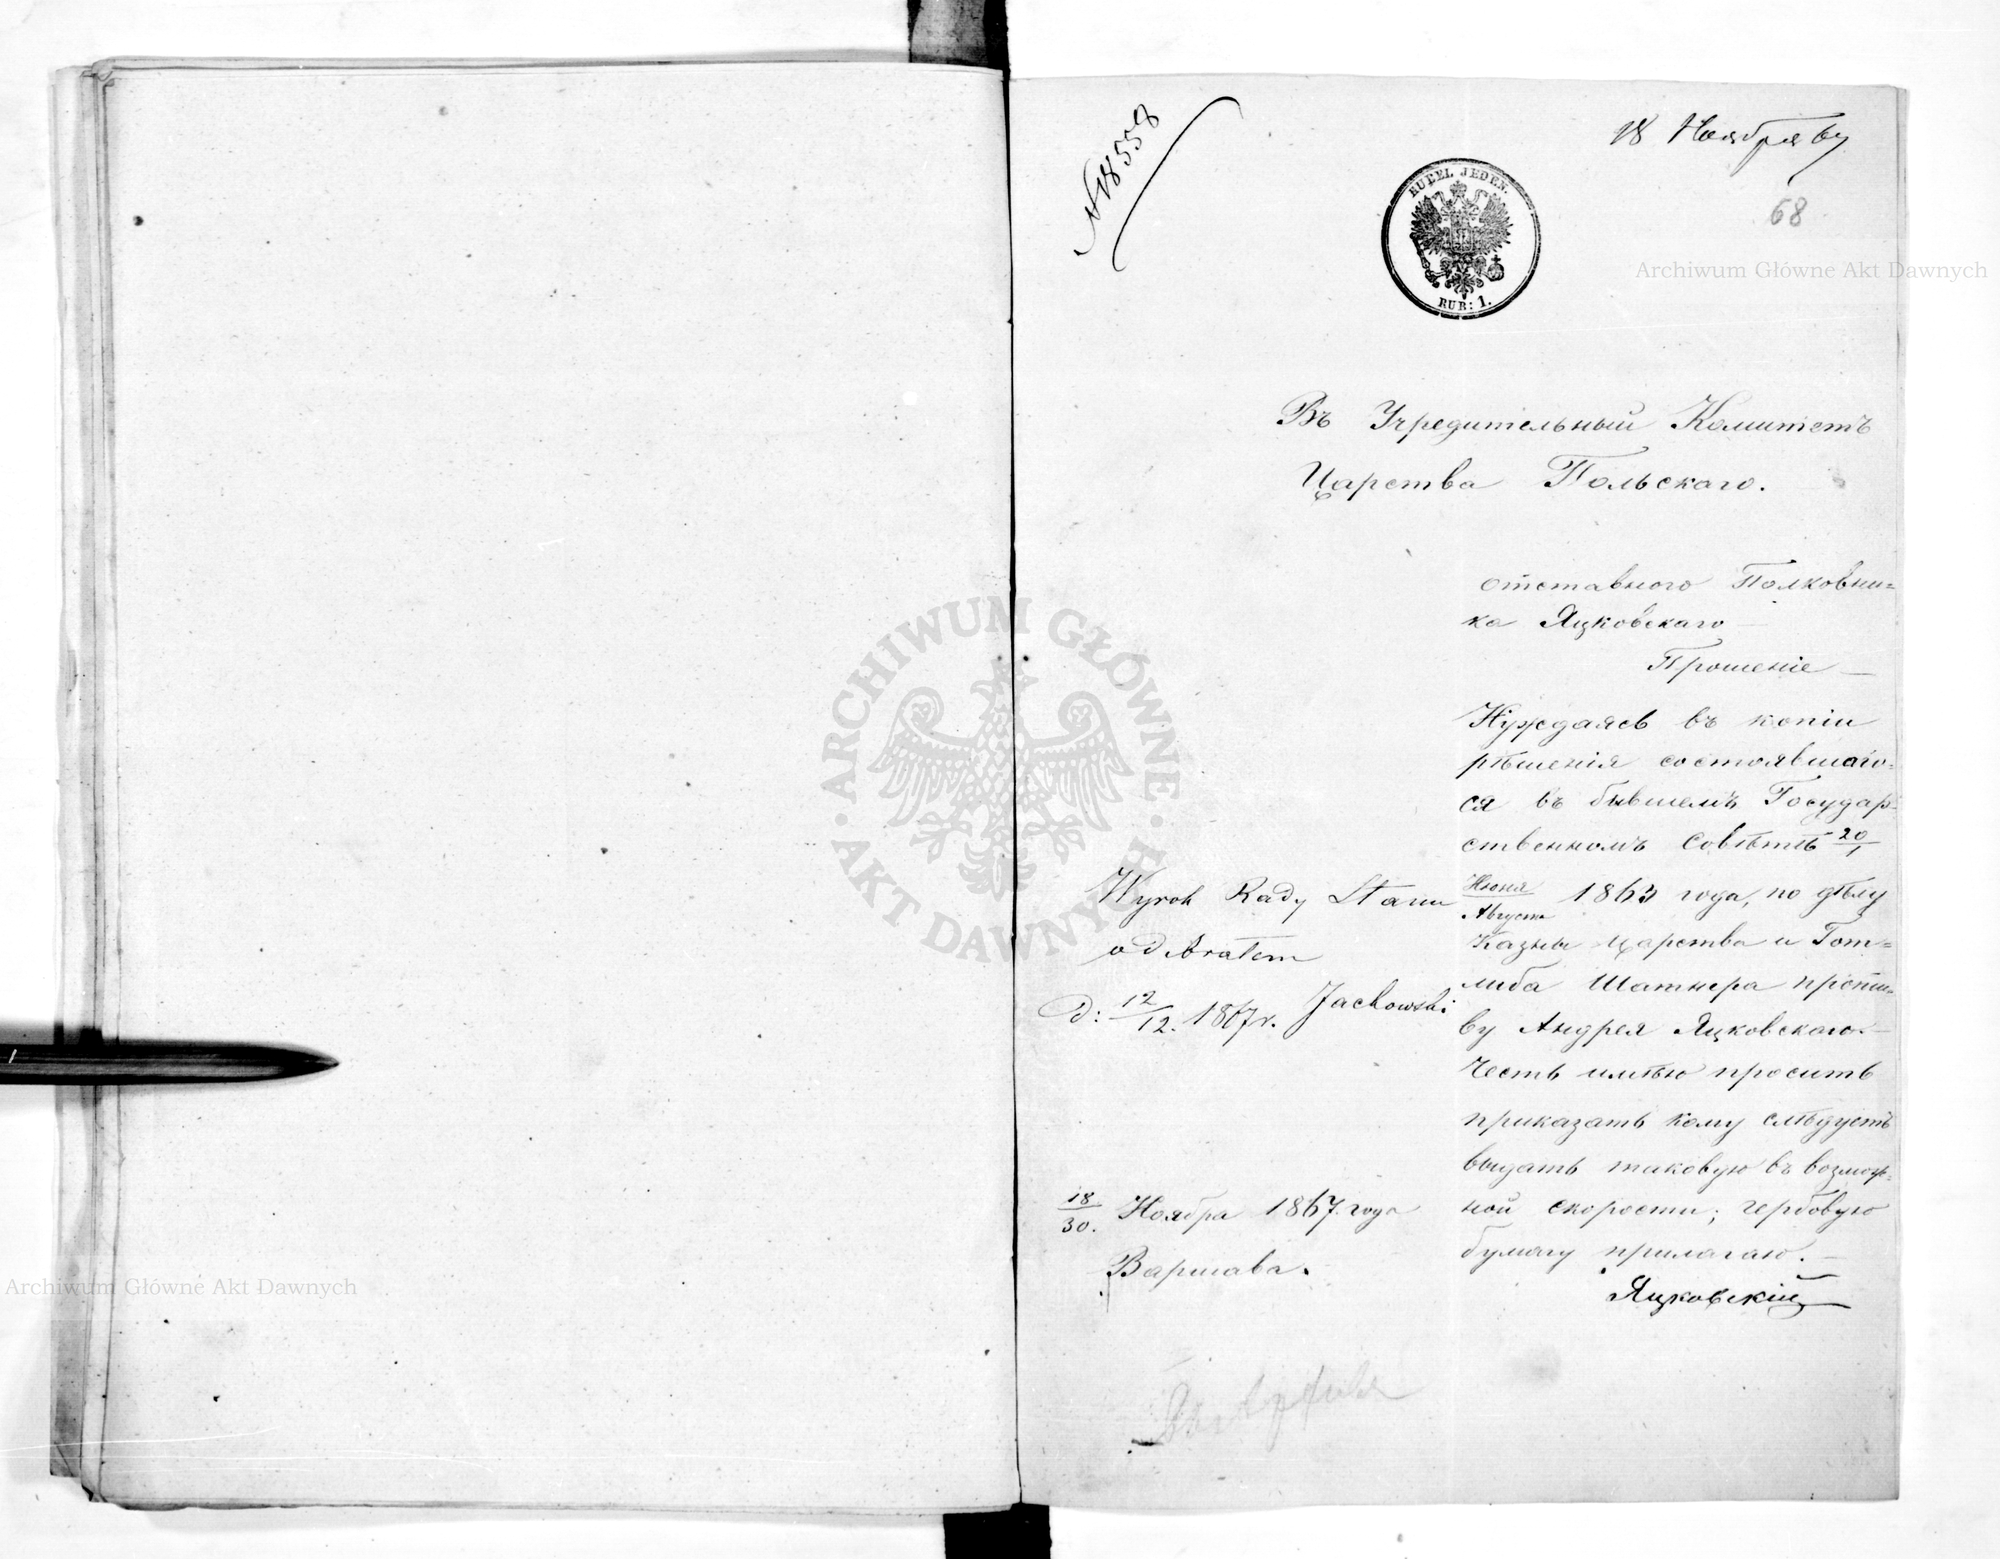 N 18558
18 Ноября 67
68
RUBEL JEDEN.
RUB: 1.
Въ Учредительный Комитетъ
Царства Польскаго.
отставного Полковни=
ка Яцковскаго
Прошеніе
Нуждаясь въ копіи
рѣшенія состоявшаго=
ся въ бывшемъ Государ=
ственномъ Совѣтѣ 20/1
Июня/Августа 1863 года, по дѣлу
Казны Царства и Гот=
либа Шатнера проти=
ву Андрея Яцковскаго.
Честь имѣю просить
приказать кому слѣдуетъ
выдать таковую въ возмож=
ной скорости; гербовую
бумагу прилагаю.
Яцковскій
Wyrok Rady Stanu
odebrałem
d: 12/12. 1867 r. Jackowski
18/30. Ноября 1867 года
Варшава.
Archiwum Główne Akt Dawnych
ARCHIWUM GŁÓWNE AKT DAWNYCH
Archiwum Główne Akt Dawnych